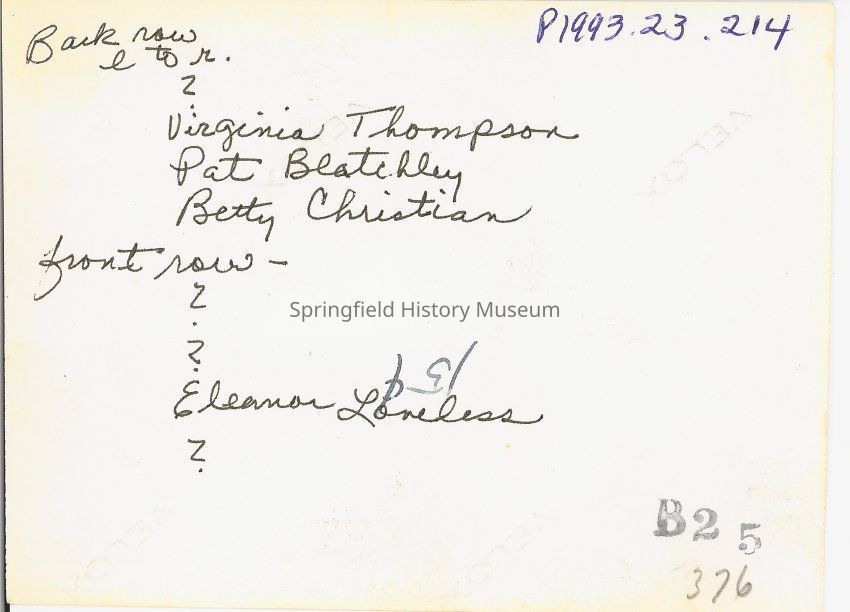 P1993.23.214
Back row
l to r.
?
Virginia Thompson
Pat Blatchley
Betty Christian
front row -
?
Springfield History Museum
?
Eleanor Loveless
?
B25
376